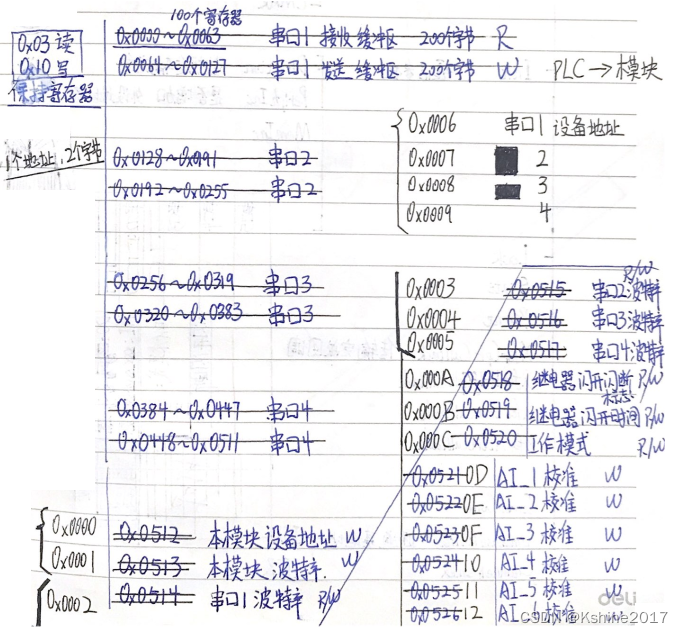 100个寄存器
0x03 读
0x10 写
保持寄存器
0x0000~0x0063 串口1 接收缓冲区 200个字节 R
0x0064~0x0127 串口1 发送缓冲区 200个字节 W PLC→模块
1个地址，2个字节
0x0006 串口1 设备地址
0x0007 2
0x0008 3
0x0009 4
0x0128~0x0191 串口2
0x0192~0x0255 串口2
0x0256~0x0319 串口3
0x0320~0x0383 串口3
R/W
0x0003 0x0515 串口2波特率
0x0004 0x0516 串口3波特率
0x0005 0x0517 串口4波特率
0x000A 0x0518 继电器闪开闪断标志 R/W
0x000B 0x0519 继电器闪开时间 R/W
0x000C 0x0520 工作模式 R/W
0x0384~0x0447 串口4
0x0448~0x0511 串口4
0x0521 0D AI_1 校准 W
0x0522 0E AI_2 校准 W
0x0523 0F AI_3 校准 W
0x0524 10 AI_4 校准 W
0x0525 11 AI_5 校准 W
0x0526 12 AI_6 校准 W
0x0000 0x0512 本模块设备地址 W
0x0001 0x0513 本模块波特率. W
0x0002 0x0514 串口1波特率 R/W
deli
CSDN @Kshine2017